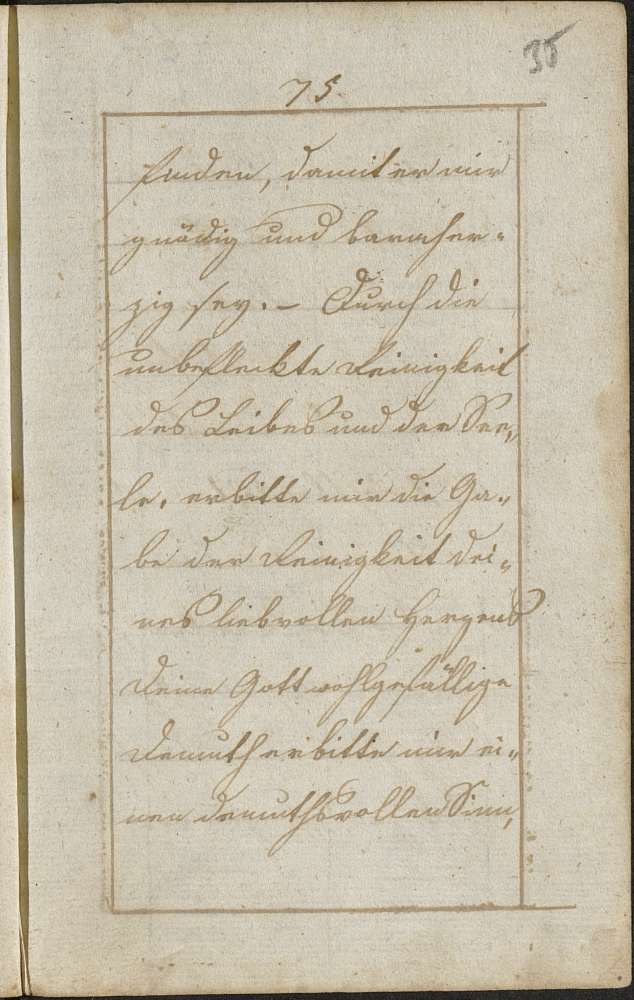 35
75.
finden, damit er mir
gnädig und barmher-
zig sey. – Durch die
unbefleckte Reinigkeit
des Leibes und der See-
le, erbitte mir die Ga-
be der Reinigkeit dei-
nes liebvollen Herzens
Deine Gott wohlgefällige
Demuth erbitte mir ei-
nen demuthsvollen Sinn,